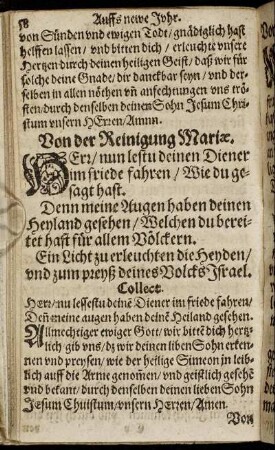 58 Auffs newe Jahr.
von Sünden vnd ewigen Todt / gnädiglich hast
helffen lassen / vnd bitten dich / erleuchte vnsere
Hertzen durch deinen heiligen Geist / daß wir für
solche deine Gnade / dir danckbar seyn / vnd der-
selben in allen nöthen vñ anfechtungen vns trö-
sten / durch denselben deinen Sohn Jesum Chri-
stum vnsern HErren / Amen.
Von der Reinigung Mariæ.
HErr / nun lestu deinen Diener
im friede fahren / Wie du ge-
sagt hast.
Denn meine Augen haben deinen
Heyland gesehen / Welchen du berei-
tet hast für allem Völckern.
Ein Licht zu erleuchten die Heyden /
vnd zum preyß deines Volcks Israel.
Collect.
HErr / nu lessestu deine Diener im friede fahren /
Deñ meine augen haben deinē Heiland gesehen.
Allmechtiger ewiger Gott / wir bittē dich hertz-
lich gib vns / dz wir deinen liben Sohn erken-
nen vnd preysen / wie der heilige Simeon in leib-
lich auff die Arme genom̃en / vnd geistlich gesehē
vnd bekant / durch denselben deinen lieben Sohn
Jesum Christum / vnsern Herren / Amen.
Von